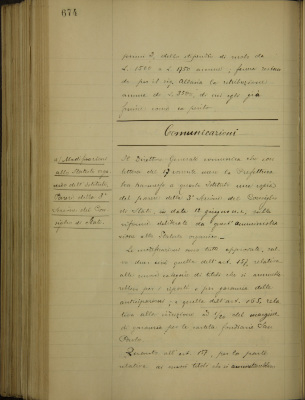 674
primo 2, dello stipendio di ruolo da
L. 1500 a L. 1750 annue, ferma restan-
do per il sig. la retribuzione
annua di L. 2500, di cui egli già
fruisce come in pianta.
Comunicazioni
Modificazioni
allo Statuto orga-
nico dell'Istituto.
Parere della 3ª
Sezione del Con-
siglio di Stato.
Il Direttore Generale comunica che con
lettera del 17 corrente mese la Prefettura
ha trasmesso a questo Istituto una copia
del parere della 3ª Sezione del Consiglio
di Stato, in data 12 giugno, sulle
riforme deliberate da quest'Amministra-
zione allo Statuto organico.
Le modificazioni non tutte approvate, sal-
vo due: cioè quella dell'art. 117, relativa
alle nuove categorie di titoli che si ammette-
rebbero per i riporti e per garanzia delle
anticipazioni; e quella dell'art. 165, rela-
tiva alla riduzione di 1/20 del margine
di garanzia per le cartelle fondiarie San
Paolo.
Quanto all'art. 117, per la parte
relativa ai nuovi titoli che si ammetterebbe